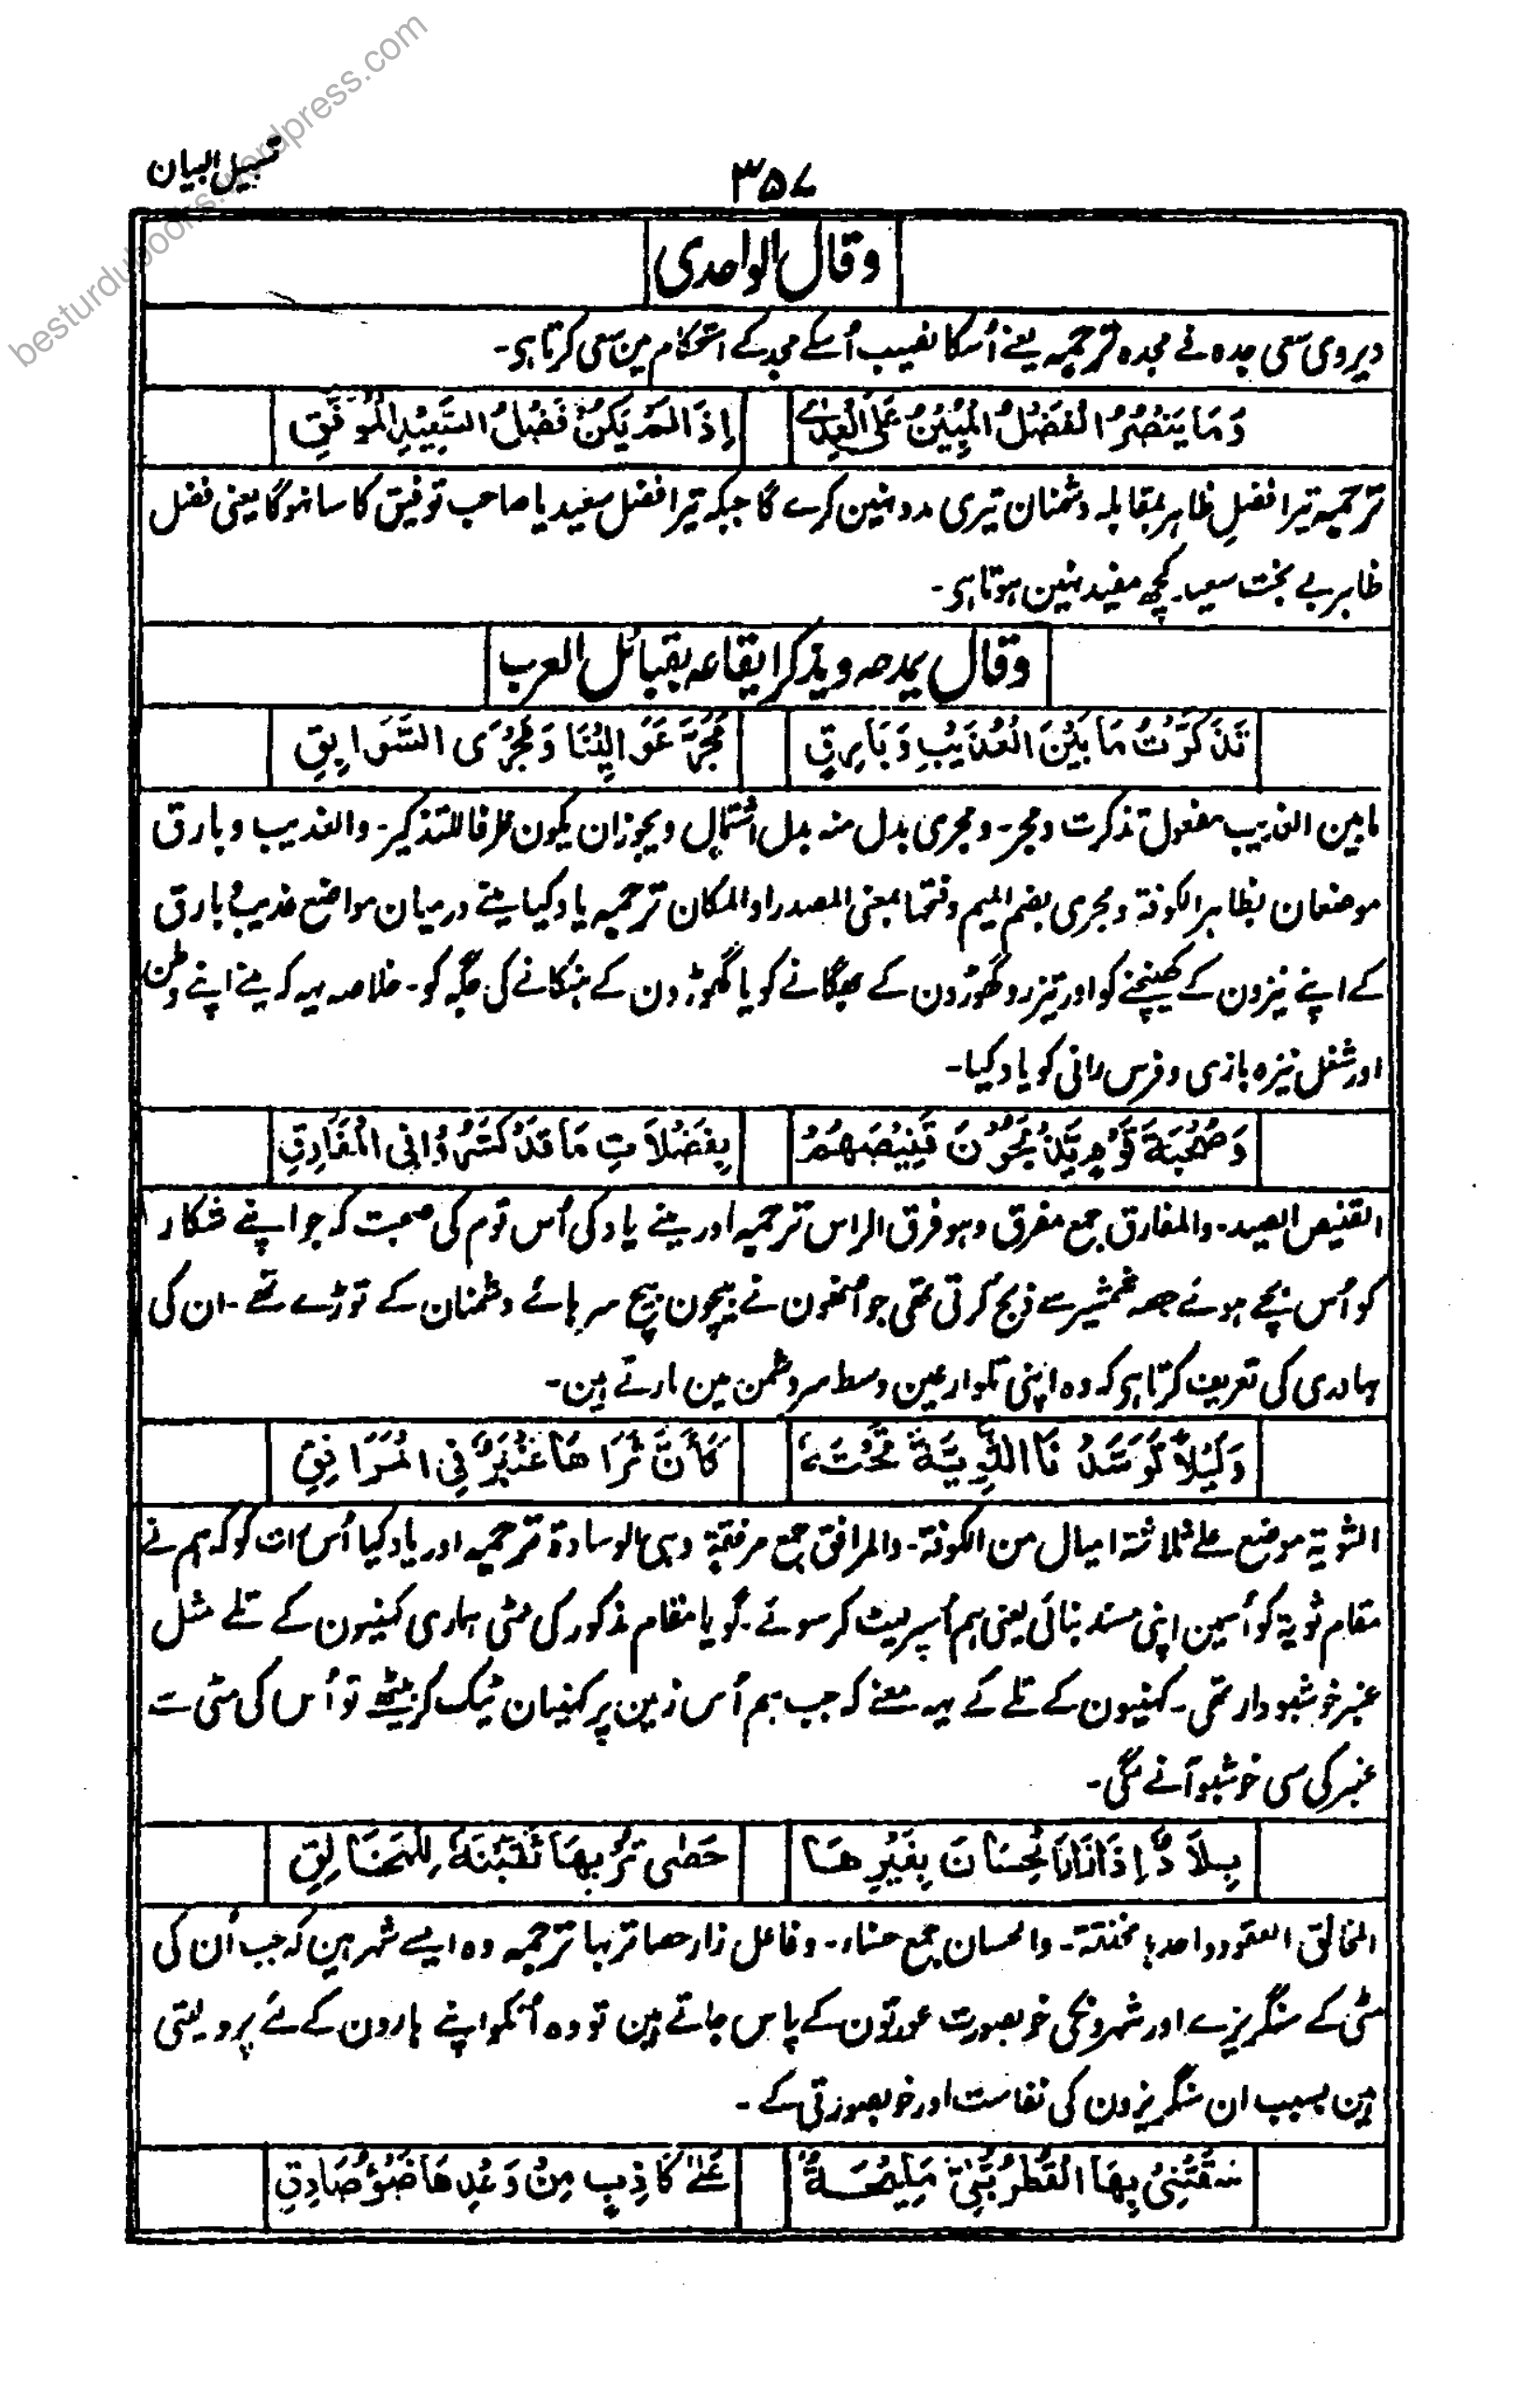 تسہیل البیان
۳۵۷
وقال الواحدی
ویروی سعی جدہ فے مجدہ ترجمہ یعنے اُسکا نصیب اُسکے مجد کے استحکام مین سعی کرتا ہو۔
وَمَا يَنْصُرُ الْفَضْلُ الْمُبِيْنُ عَلَى الْعِدٰى اِذَا لَمْ يَكُنْ فَضْلُ السَّعِيْدِ الْمُوَفَّقِ
ترجمہ تیرا فضلِ ظاہر بمقابلہ دشمنان تیری مدد نہین کرے گا جبکہ تیرا فضل سعید یا صاحب توفیق کا سا نہوگا یعنی فضل
ظاہر بے بخت سعید کچھ مفید نہین ہوتا ہو۔
وقال یمدحہ ویذکر ایقاعہ بقبائل العرب
تَذَكَّرْتُ مَا بَيْنَ الْعُذَيْبِ وَبَارِقٍ مَجَرَّ عَوَالِيْنَا وَمَجْرَى السَّوَابِقِ
مابین العذیب مفعول تذکرت ومجر۔ ومجری بدل منہ بدل اشتمال ویجوز ان یکون ظرفا للتذکیر۔ والعذیب وبارق
موضعان بظاہر الکوفۃ ومجری بضم المیم وفتحہا بمعنی المصدر او المکان ترجمہ یاد کیا مینے درمیان مواضع عذیب و بارق
کے اپنے نیزون کے کھینچنے کو اور تیز رو گھوڑون کے بھگانے کو یا گھوڑون کے ہنکانے کی جگہ کو۔ خلاصہ یہ کہ مینے اپنے وطن
اور شغل نیزہ بازی و فرس رانی کو یاد کیا۔
وَصُحْبَةَ قَوْمٍ يَذْبَحُوْنَ قَنِيْصَهُمْ بِفَضْلَاتِ مَا قَدْ كَسَّرُوْا فِى الْمَفَارِقِ
القنیص الصید۔ والمفارق جمع مفرق وہو فرق الراس ترجمہ اور مینے یاد کی اُس قوم کی صحبت کہ جو اپنے شکار
کو اُس بچے ہوئے حصہ شمشیر سے ذبح کرتی تھی جو اُنھون نے بیچون بیچ سرہائے دشمنان کے توڑے تھے۔ ان کی
بہادری کی تعریف کرتا ہو کہ وہ اپنی تلوار عین وسط سر دشمن مین مارتے ہین۔
وَلَيْلًا تَوَسَّدْنَا الثَّوِيَّةَ تَحْتَهٗ كَأَنَّ ثَرَاهَا عَنْبَرٌ فِى الْمَرَافِقِ
الثویۃ موضع علے ثلاثۃ امیال من الکوفۃ۔ والمرافق جمع مرفقۃ وہی الوسادۃ ترجمہ اور یاد کیا اُس رات کو کہ ہم نے
مقام ثویۃ کو اُسمین اپنی مسند بنائی یعنی ہم اُسپر لیٹ کر سوئے۔ گویا مقام مذکور کی مٹی ہماری کہنیون کے تلے مثل
عنبر خوشبودار تھی۔ کہنیون کے تلے کے یہ معنے کہ جب ہم اُس زمین پر کہنیان ٹیک کر بیٹھے تو اُس کی مٹی سے
عنبر کی سی خوشبو آنے لگی۔
بِلَادٌ اِذَا زَارَ الْحِسَانَ بِغَيْرِهَا حَصٰى تُرْبِهَا ثَقَّبْنَهٗ لِلْمَخَانِقِ
المخانق العقود واحدہا مخنقۃ۔ والحسان جمع حسناء۔ وفاعل زار حصا تربہا ترجمہ وہ ایسے شہر ہین کہ جب اُن کی
مٹی کے سنگریزے اور شہرونکی خوبصورت عورتون کے پاس جاتے ہین تو وہ اُنکو اپنے ہارون کے لئے پرو لیتی
ہین بسبب ان سنگریزون کی نفاست اور خوبصورتی کے۔
سَقَتْنِىْ بِهَا الْقُطْرُبُّلِىَّ مَلِيْحَةٌ عَلٰى كَاذِبٍ مِنْ وَعْدِهَا ضَوْءُ صَادِقِ
besturdubooks.wordpress.com